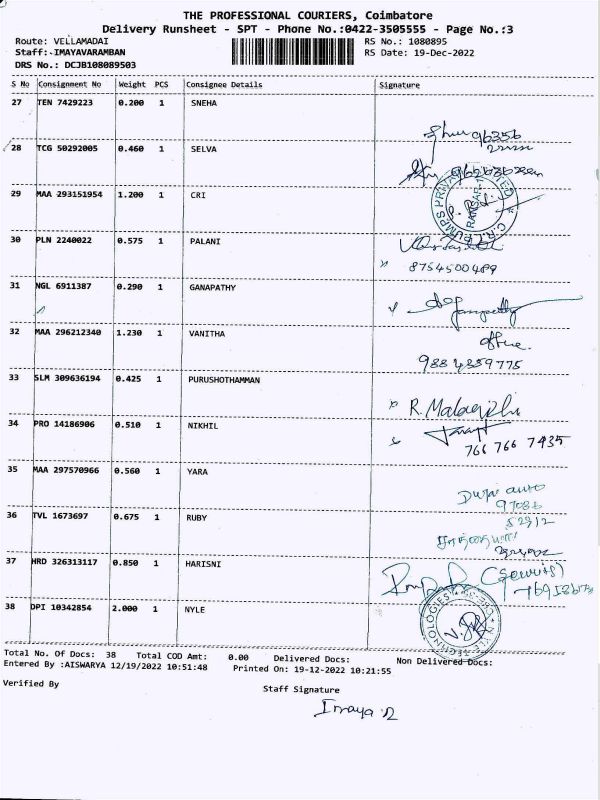 THE PROFESSIONAL COURIERS, Coimbatore
Delivery Runsheet - SPT - Phone No.:0422-3505555 - Page No.:3
Route: VELLAMADAI RS No.: 1080895
Staff: IMAYAVARAMBAN RS Date: 19-Dec-2022
DRS No.: DCJB108089503
S No Consignment No Weight PCS Consignee Details Signature
27 TEN 7429223 0.200 1 SNEHA
96356
28 TCG 50292005 0.460 1 SELVA
29 MAA 293151954 1.200 1 CRI
30 PLN 2240022 0.575 1 PALANI
8754500489
31 NGL 6911387 0.290 1 GANAPATHY
32 MAA 296212340 1.230 1 VANITHA
office
9884359775
33 SLM 309636194 0.425 1 PURUSHOTHAMMAN
R. Malagishi
34 PRO 14186906 0.510 1 NIKHIL
766 766 7435
35 MAA 297570966 0.560 1 YARA
auto
97086
52312
36 TVL 1673697 0.675 1 RUBY
37 HRD 326313117 0.850 1 HARISNI
38 DPI 10342854 2.000 1 NYLE
Total No. Of Docs: 38 Total COD Amt: 0.00 Delivered Docs: Non Delivered Docs:
Entered By :AISWARYA 12/19/2022 10:51:48 Printed On: 19-12-2022 10:21:55
Verified By
Staff Signature
Imaya